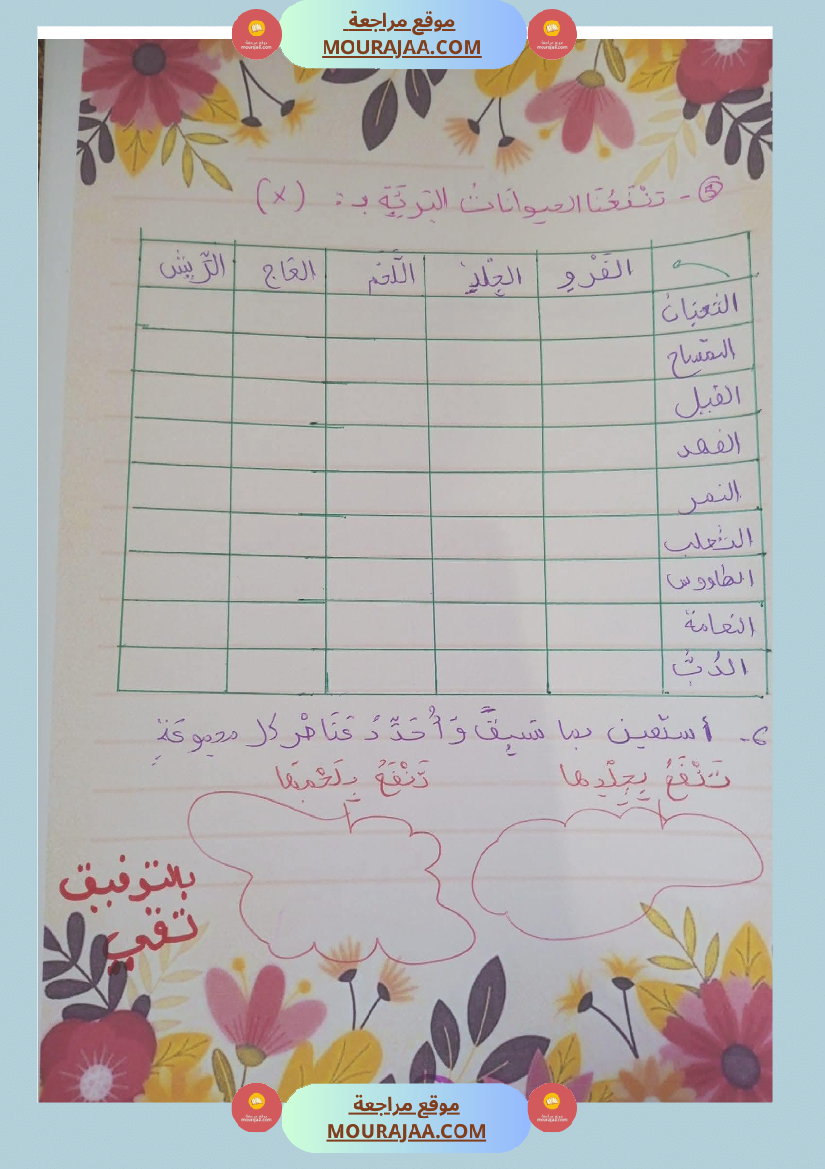 موقع مراجعة
MOURAJAA.COM
⑤ - تَنْفَعُنَا الحيوانَاتُ البَرِيَّةِ بـ : (x)
الفَرْوِ الجِلْدِ اللَّحْم العَاج الرِّيش
الثعبان
التمساح
الفيل
الفهد
النمر
الثعلب
الطاووس
النعامة
الدُبّ
6- أستعين بما سَبَقَ وَأُحَدِّدُ عَنَاصِرَ كل مجموعَةٍ
تَنْفَعُ بِجِلْدِها تَنْفَعُ بِلَحْمِهَا
بالتوفيق
تقي
موقع مراجعة
MOURAJAA.COM